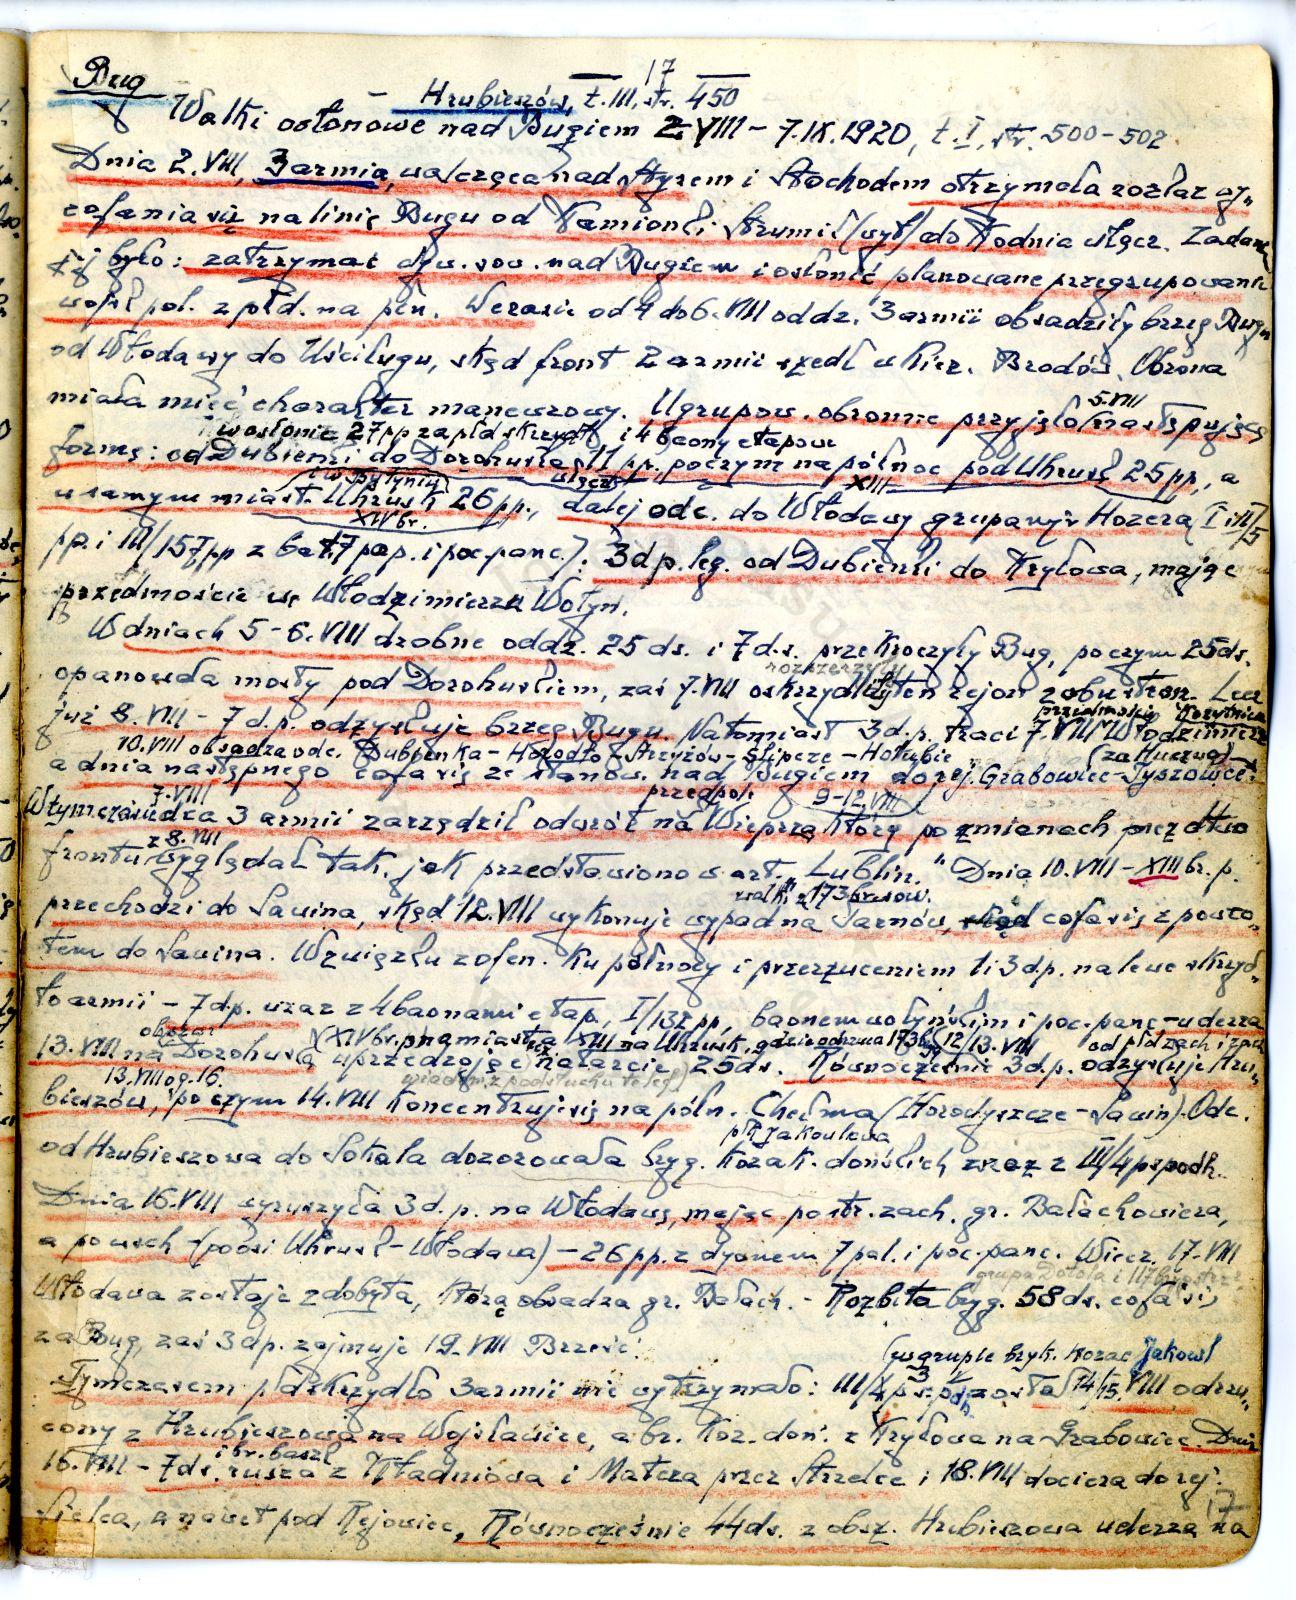 Bug
— 17 —
— Hrubieszów, t. III, str. 450
Walki osłonowe nad Bugiem 2.VIII – 7.IX.1920, t. I, str. 500-502
Dnia 2.VIII, 3 armia, walcząca nad Styrem i Stochodem otrzymała rozkaz wy„
cofania się na linię Bugu od Kamionki Strumił (wył) do Kodnia włącz. Zadaniem
jej było: zatrzymać dyw. sow. nad Bugiem i osłonić planowane przegrupowanie
wojsk pol. z płd. na płn. W czasie od 4 do 6.VIII oddz. 3 armii obsadziły brzeg Bugu
od Włodawy do Uściługu, skąd front 2 armii szedł w kier. Brodów. Obrona
miała mieć charakter manewrowy. Ugrupow. obronne przyjęło 5.VIII następującą
w osłonie 27 pp za płd skrzydł. i 4 baony etapowe
formę: od Dubienki do Dorohuska 17 pp, poczym na północ pod Uhrusk 25 pp, a
i w Spłyniu włącz XIII
w samym miast. Uhrusk 26 pp., dalej odc. do Włodawy grupa mjr Hozera (I i II/5
XIV br.
pp i III/157 pp z bat. 7 pap. i poc. panc.). 3 dp. leg. od Dubienki do Kryłowa, mając
przedmoście we Włodzimierzu Wołyn.
W dniach 5-6.VIII drobne oddz. 25 ds. i 7 d.s. przekroczyły Bug, poczym 25 ds.
rozszerzyły
opanowała mosty pod Dorohuskiem, zaś 7.VIII oskrzydliły ten rejon z obu stron. Lecz
przedmoście Korytnica
już 8.VIII – 7 d.p. odzyskuje brzeg Bugu. Natomiast 3 d.p. traci 7.VIII Włodzimierz
10.VIII obsadza odc. Dubienka – Horodło – Strzyżów – Ślipcze – Hołubie (za Huczwą)
a dnia następnego cofa się ze stanow. nad Bugiem do rej. Grabowiec – Tyszowce.
7.VIII przedpole 9-12.VIII
W tym czasie dca 3 armii zarządził odwrót na Wieprz, który po zmianach przez dtwo
z 8.VIII
frontu wyglądał tak, jak przedstawiono w art. „Lublin." Dnia 10.VIII – XIII br. p.
walk. z 173 br. sow.
przechodzi do Sawina, skąd 12.VIII wykonuje wypad na Sarnów, skąd cofa się z powro„
tem do Sawina. W związku z ofen. ku północy i przerzuceniem 1 i 3 dp. na lewe skrzyd„
ło armii – 7 d.p. wraz z 4 baonami etap, I/13 pp, baonem wołyńskim i poc. panc – uderza
obszar XIV br. p. na miast. a XIII na Uhrusk, gdzie odrzuca 173 br. 12/13.VIII od płd zach i zach
13.VIII na Dorohusk, uprzedzając natarcie 25 ds. Równocześnie 3 d.p. odzyskuje Hru„
13.VIII o g. 16. wiadom. z podsłuchu teleg.)
bieszów, poczym 14.VIII koncentruje się na półn. Chełma (Horodyszcze – Sawin). Odc.
płk Jakowlewa
od Hrubieszowa do Sokala dozorowała bryg. kozak. dońskich wraz z III/4 p. s. podh.
Dnia 16.VIII wyruszyła 3 d.p. na Włodawę, mając po str. zach. gr. Bałachowicza,
a po wsch – (poosi Uhrusk – Włodawa) – 26 pp. z dyonem 7 pal. i poc. panc. Wiecz. 17.VIII
Włodawa zostaje zdobyta, którą obsadza gr. Bałach. – Rozbita bryg. 58 ds. cofa się
za Bug, zaś 3 dp. zajmuje 19.VIII Brześć.
(w grupie bryk. kozac Jakowl
Tymczasem płd skrzydło 3 armii nie wytrzymało: III/4 p. s. podh. został 14/15.VIII odrzu„
cony z Hrubieszowa na Wojsławice, a br. Koz. doń. z Kryłowa na Grabowiec. Dnia
i br. baszk
16.VIII – 7 ds. rusza z Kładniowa i Matcza przez Strzelce i 18.VIII dociera do rej.
Sielca, a nawet pod Rejowiec. Równocześnie 44 ds. z obsz. Hrubieszowa uderza na
17